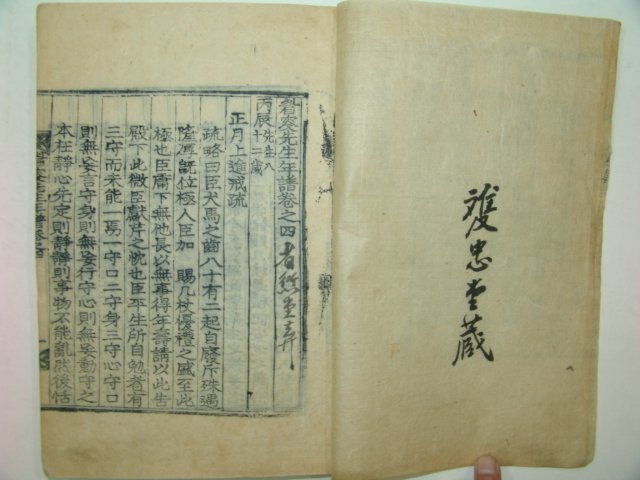 護忠堂蔵
眉叟先生年譜卷之四
丙辰先生八十二歲
正月上進戒疏
疏略曰臣犬馬之齒八十有二起自廢斥殊遇
隆厚旣位極人臣加 賜几杖優禮之盛至此
極也臣庸下無他長以無事得年壽請以此告
殿下此微臣獻芹之忱也臣平生所自勉者有
三守而未能一焉一守口二守身三守心守口
則無妄言守身則無妄行守心則無妄動守之
本在靜心先定則靜靜則事物不能亂然後恬